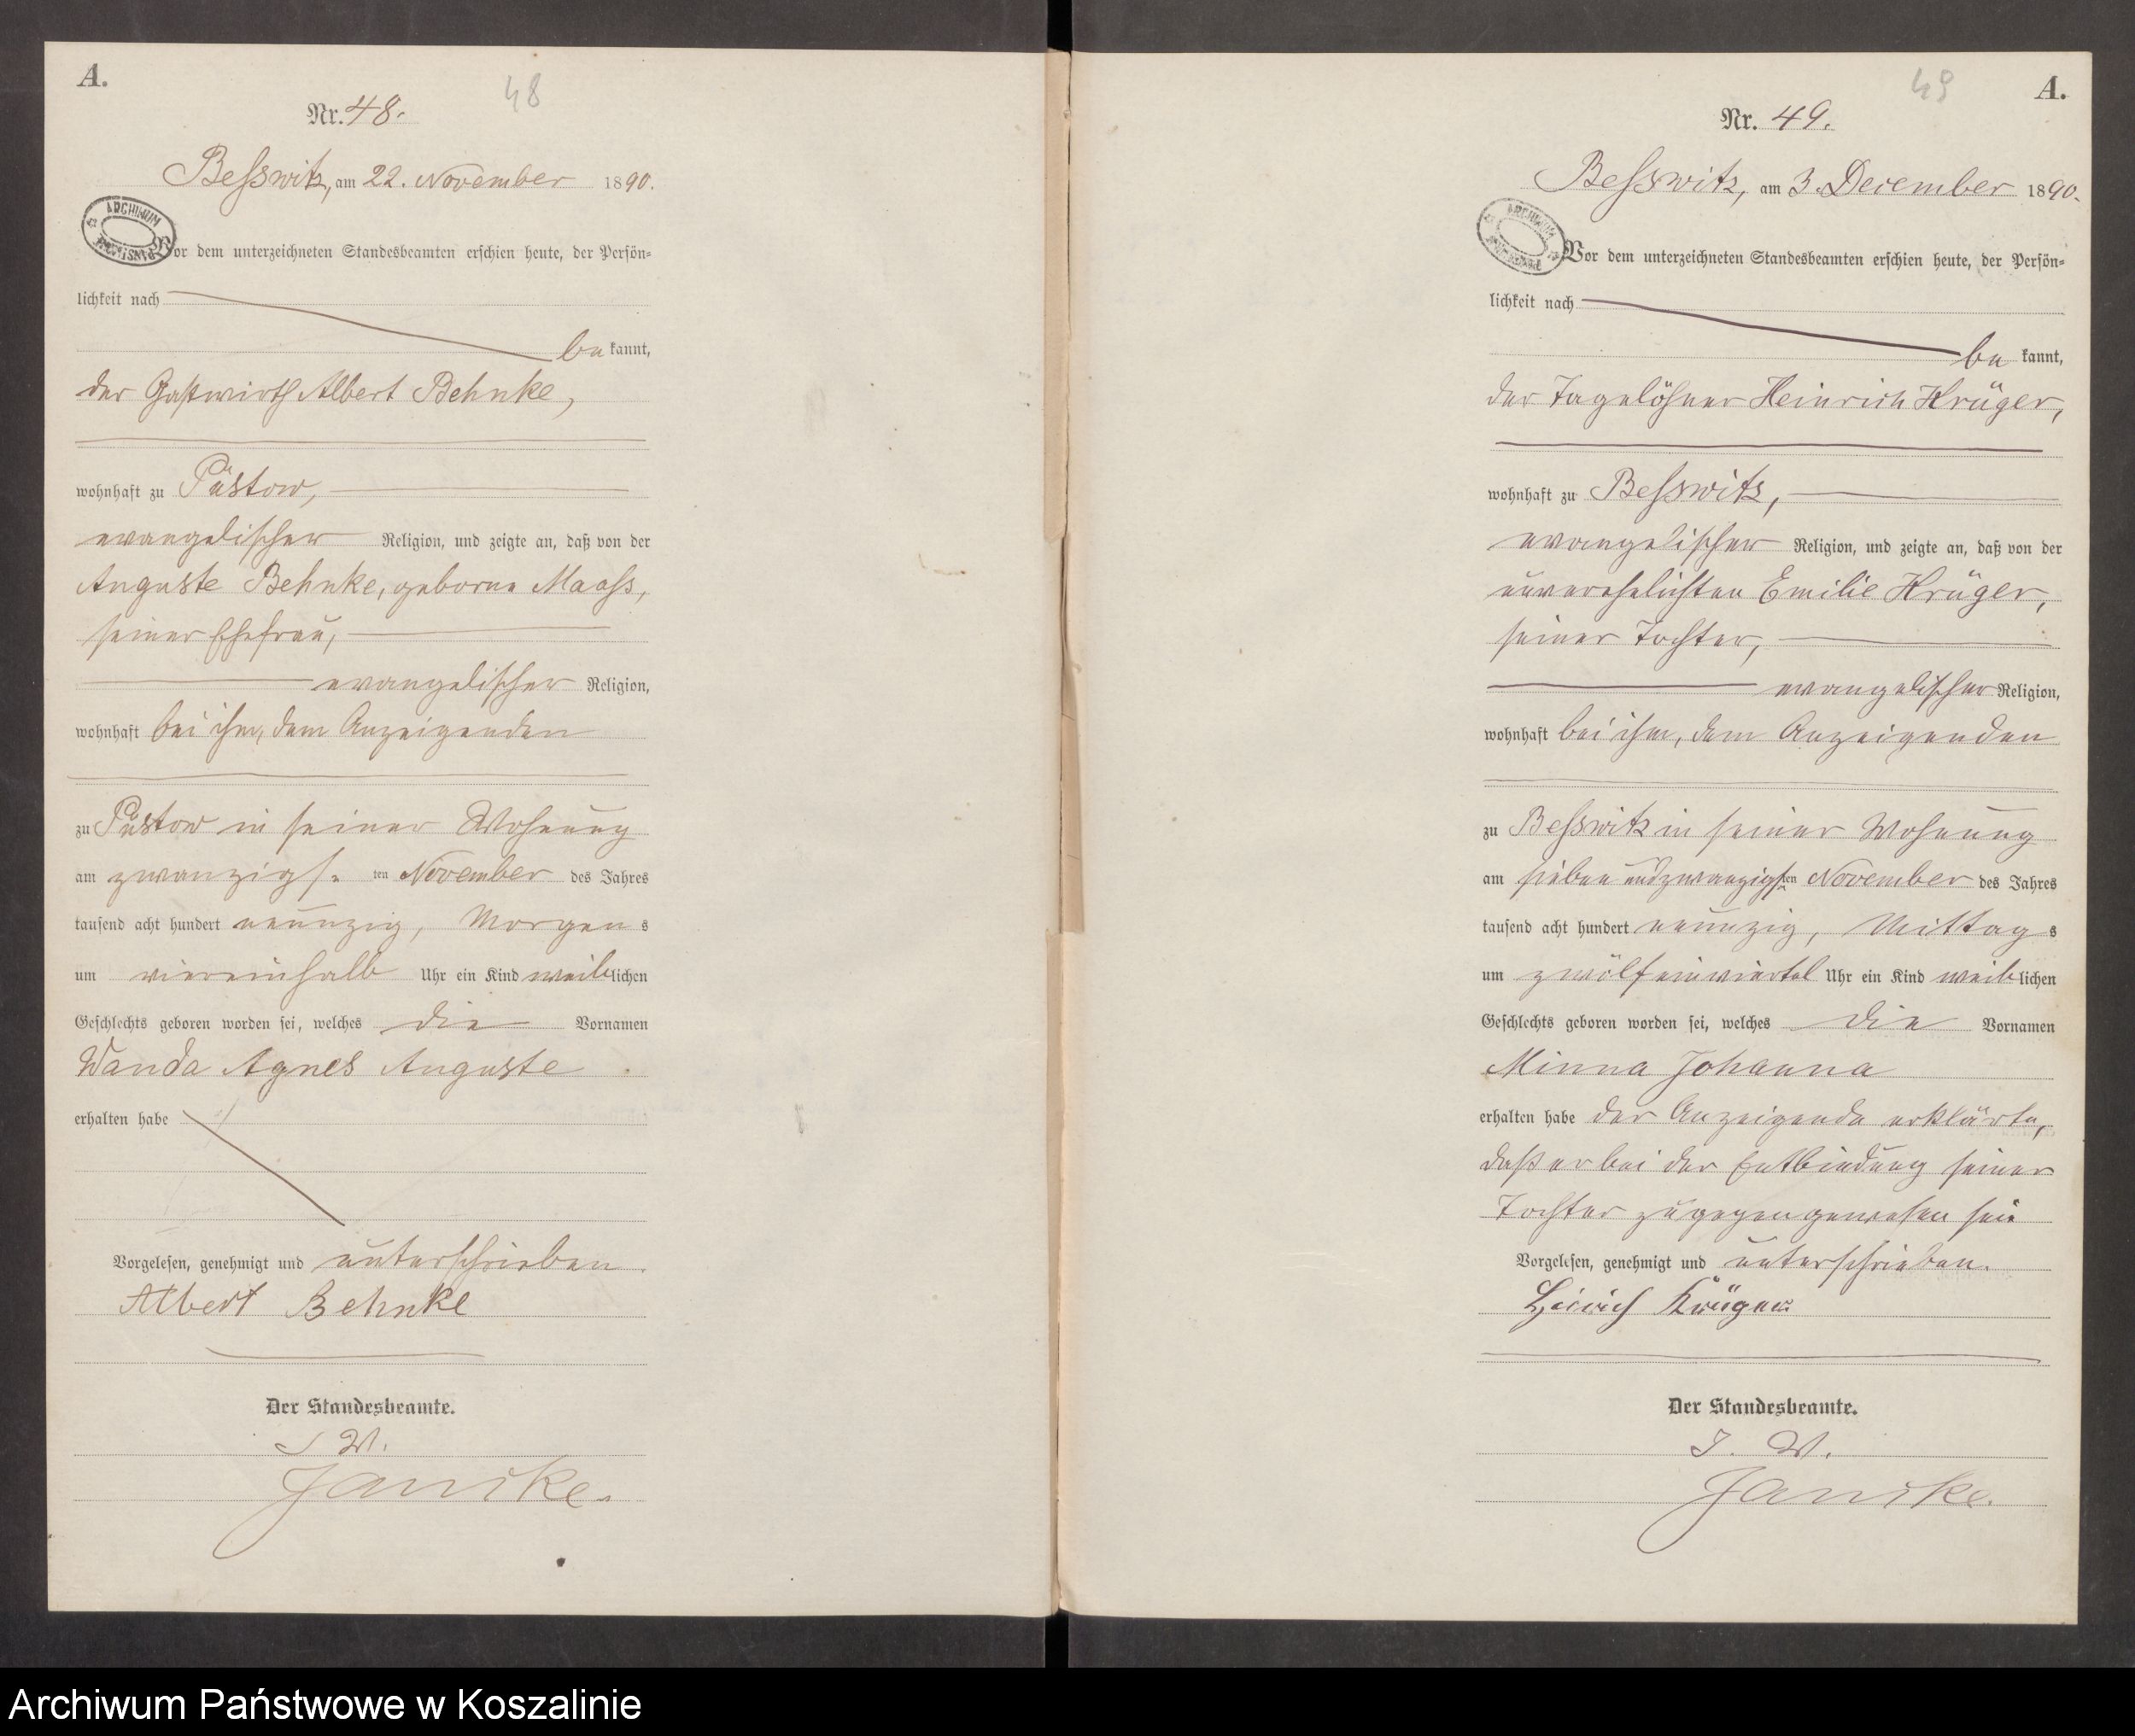 A.
48
Nr. 48.
Besswitz, am 22. November 1890.
ARCHIWUM
Vor dem unterzeichneten Standesbeamten erschien heute, der Persön-
lichkeit nach
be kannt,
der Gastwirth Albert Behnke,
wohnhaft zu Püstow,
evangelischer Religion, und zeigte an, daß von der
Auguste Behnke, geborne Maass,
seiner Ehefrau,
evangelischer Religion,
wohnhaft bei ihm, dem Anzeigenden
zu Püstow in seiner Wohnung
am zwanzigs. ten November des Jahres
tausend acht hundert neunzig, Morgen s
um viereinhalb Uhr ein Kind weiblichen
Geschlechts geboren worden sei, welches die Vornamen
Wanda Agnes Auguste
erhalten habe
Vorgelesen, genehmigt und unterschrieben.
Albert Behnke
Der Standesbeamte.
J W.
Janike.
49
A.
Nr. 49.
Besswitz, am 3. December 1890.
ARCHIWUM
Vor dem unterzeichneten Standesbeamten erschien heute, der Persön-
lichkeit nach
be kannt,
der Tagelöhner Heinrich Krüger,
wohnhaft zu Besswitz,
evangelischer Religion, und zeigte an, daß von der
unverehelichten Emilie Krüger,
seiner Tochter,
evangelischer Religion,
wohnhaft bei ihm, dem Anzeigenden
zu Besswitz in seiner Wohnung
am sieben und zwanzigsten November des Jahres
tausend acht hundert neunzig, Mittag s
um zwölfeinviertel Uhr ein Kind weiblichen
Geschlechts geboren worden sei, welches die Vornamen
Minna Johanna
erhalten habe der Anzeigende erklärte,
daß er bei der Entbindung seiner
Tochter zugegen gewesen sei
Vorgelesen, genehmigt und unterschrieben.
Heinrich Krüger
Der Standesbeamte.
J. W.
Janike.
Archiwum Państwowe w Koszalinie